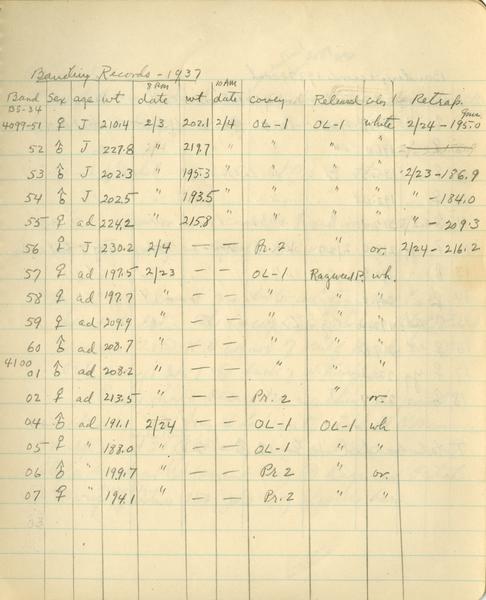 Banding Records - 1937
8 AM 10 AM
Band Sex age wt date wt date covey Released color Retrap.
B5-34 gms
4099-51 ♀ J 210.4 2/3 202.1 2/4 OL-1 OL-1 white 2/24 - 195.0
52 ♂ J 227.8 " 219.7 " " " "
53 ♂ J 202.3 " 195.3 " " " " 2/23 - 186.9
54 ♂ J 202.5 " 193.5 " " " " " - 184.0
55 ♀ ad 224.2 " 215.8 " " " " " - 209.3
56 ♀ J 230.2 2/4 — — Pr. 2 " or. 2/24 - 216.2
57 ♀ ad 197.5 2/23 — — OL-1 Ragweed P. wh.
58 ♀ ad 197.7 " — — " " "
59 ♀ ad 209.9 " — — " " "
60 ♂ ad 208.7 " — — " " "
4100
01 ♂ ad 208.2 " — — " " "
02 ♀ ad 213.5 " — — Pr. 2 " or.
04 ♂ ad 191.1 2/24 — — OL-1 OL-1 wh
05 ♀ " 188.0 " — — OL-1 " "
06 ♂ " 199.7 " — — Pr 2 " or.
07 ♀ " 194.1 " — — Pr. 2 " "